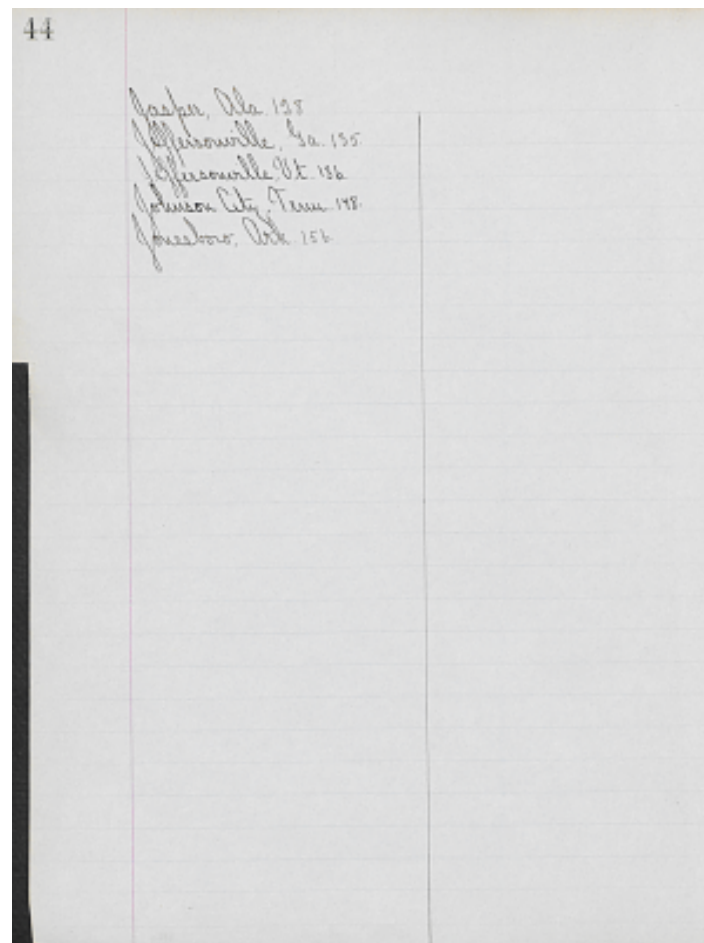 44
Jasper, Ala. 128
Jeffersonville, Ga. 135
Jeffersonville, Vt. 136
Johnson City, Tenn. 148.
Jonesboro, Ark. 156.